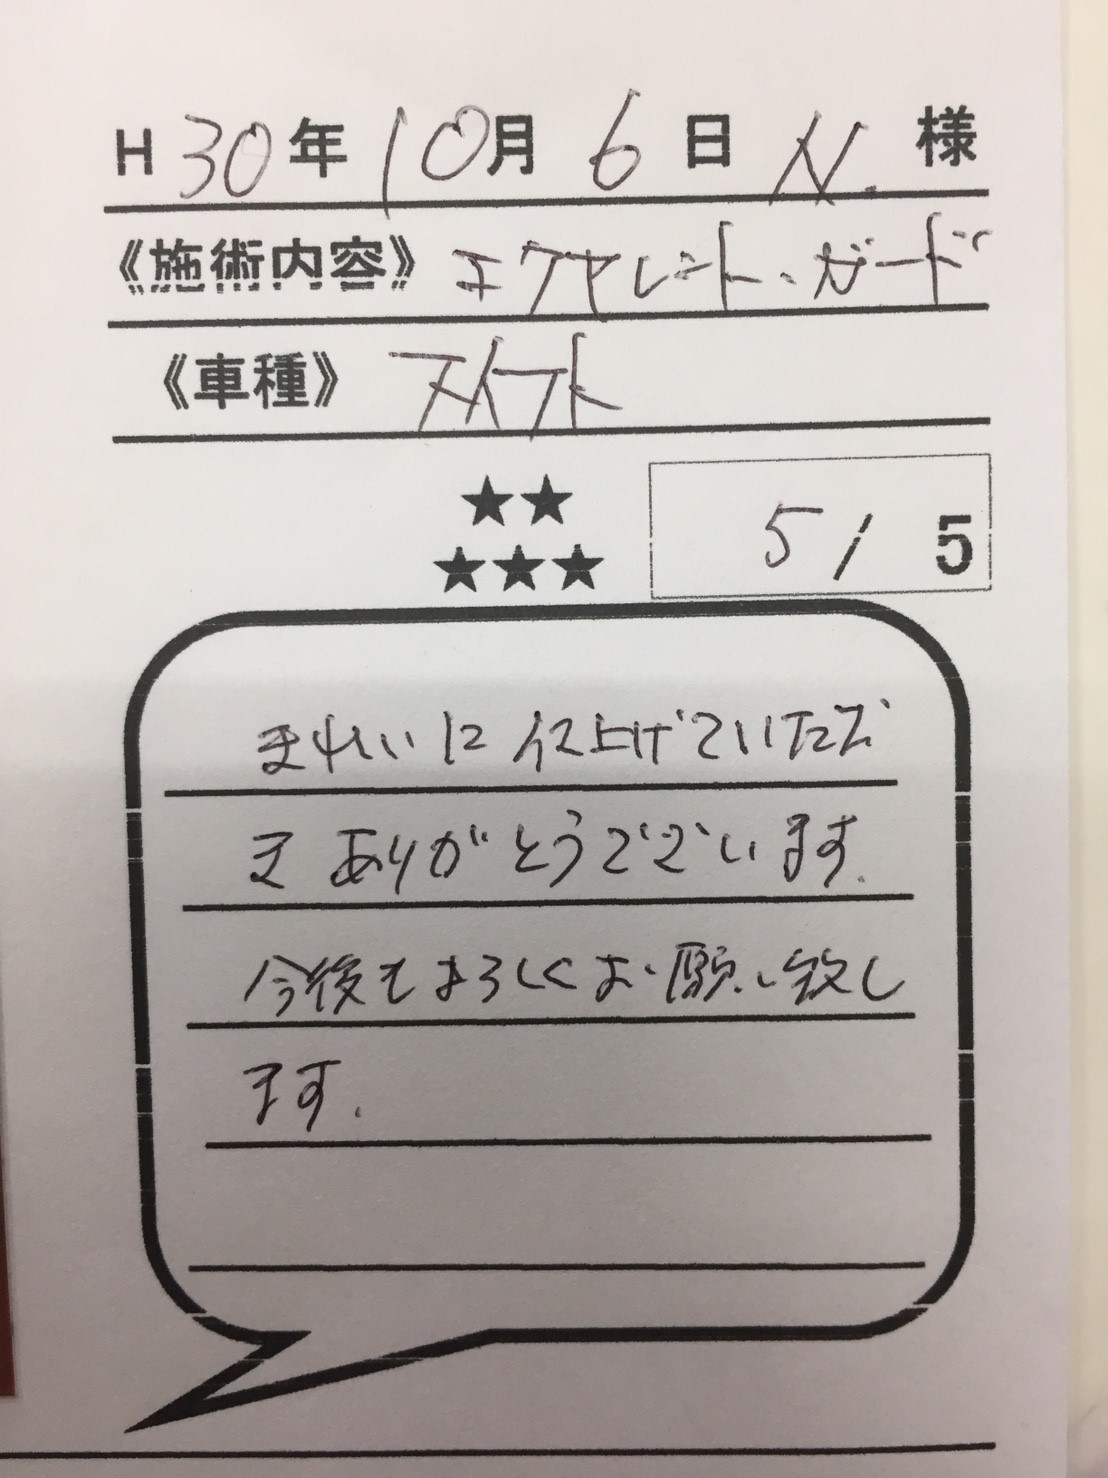 H 30年 10月 6日 N. 様
《施術内容》 エクセレント・ガード
《車種》 スイフト
★★
★★★
5/5
きれいに仕上げていただ
き ありがとうございます.
今後もよろしくお願い致し
ます.